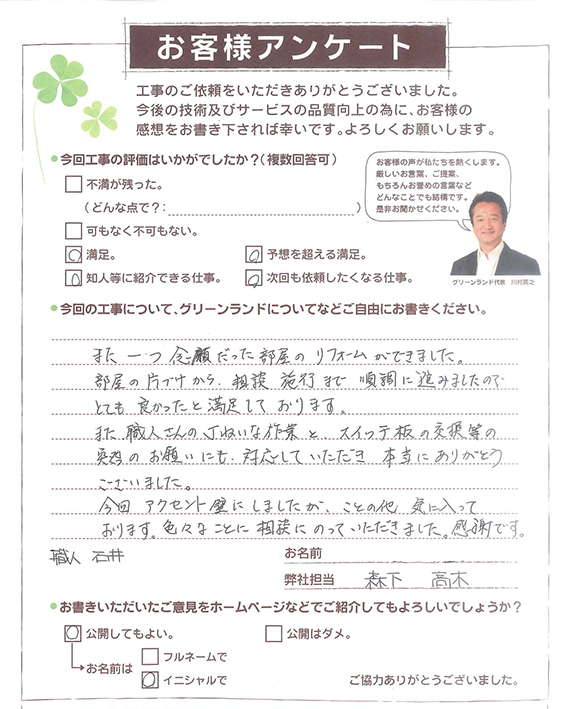 お客様アンケート
工事のご依頼をいただきありがとうございました。
今後の技術及びサービスの品質向上の為に、お客様の
感想をお書き下されば幸いです。よろしくお願いします。
今回工事の評価はいかがでしたか?(複数回答可)
不満が残った。
(どんな点で?: )
可もなく不可もない。
満足。
予想を超える満足。
知人等に紹介できる仕事。
次回も依頼したくなる仕事。
お客様の声が私たちを熱くします。
厳しいお言葉、ご提案、
もちろんお誉めの言葉など
どんなことでも結構です。
是非お聞かせください。
グリーンランド代表 川村英之
今回の工事について、グリーンランドについてなどご自由にお書きください。
また 一つ 念願だった 部屋の リフォーム ができました。
部屋の片づけから、相談 施行まで 順調に進みましたので
とても 良かったと満足して おります。
また 職人さんの ていねいな作業 と、スイッチ板の交換等の
のお願いにも、対応していただき 本当にありがとう
ございました。
今回 アクセント壁にしましたが、ことの他 気に入って
おります。色々なことに相談にのっていただきました。感謝です。
職人 石井
お名前
弊社担当 森下 高木
お書きいただいたご意見をホームページなどでご紹介してもよろしいでしょうか?
公開してもよい。
公開はダメ。
お名前は
フルネームで
イニシャルで
ご協力ありがとうございました。